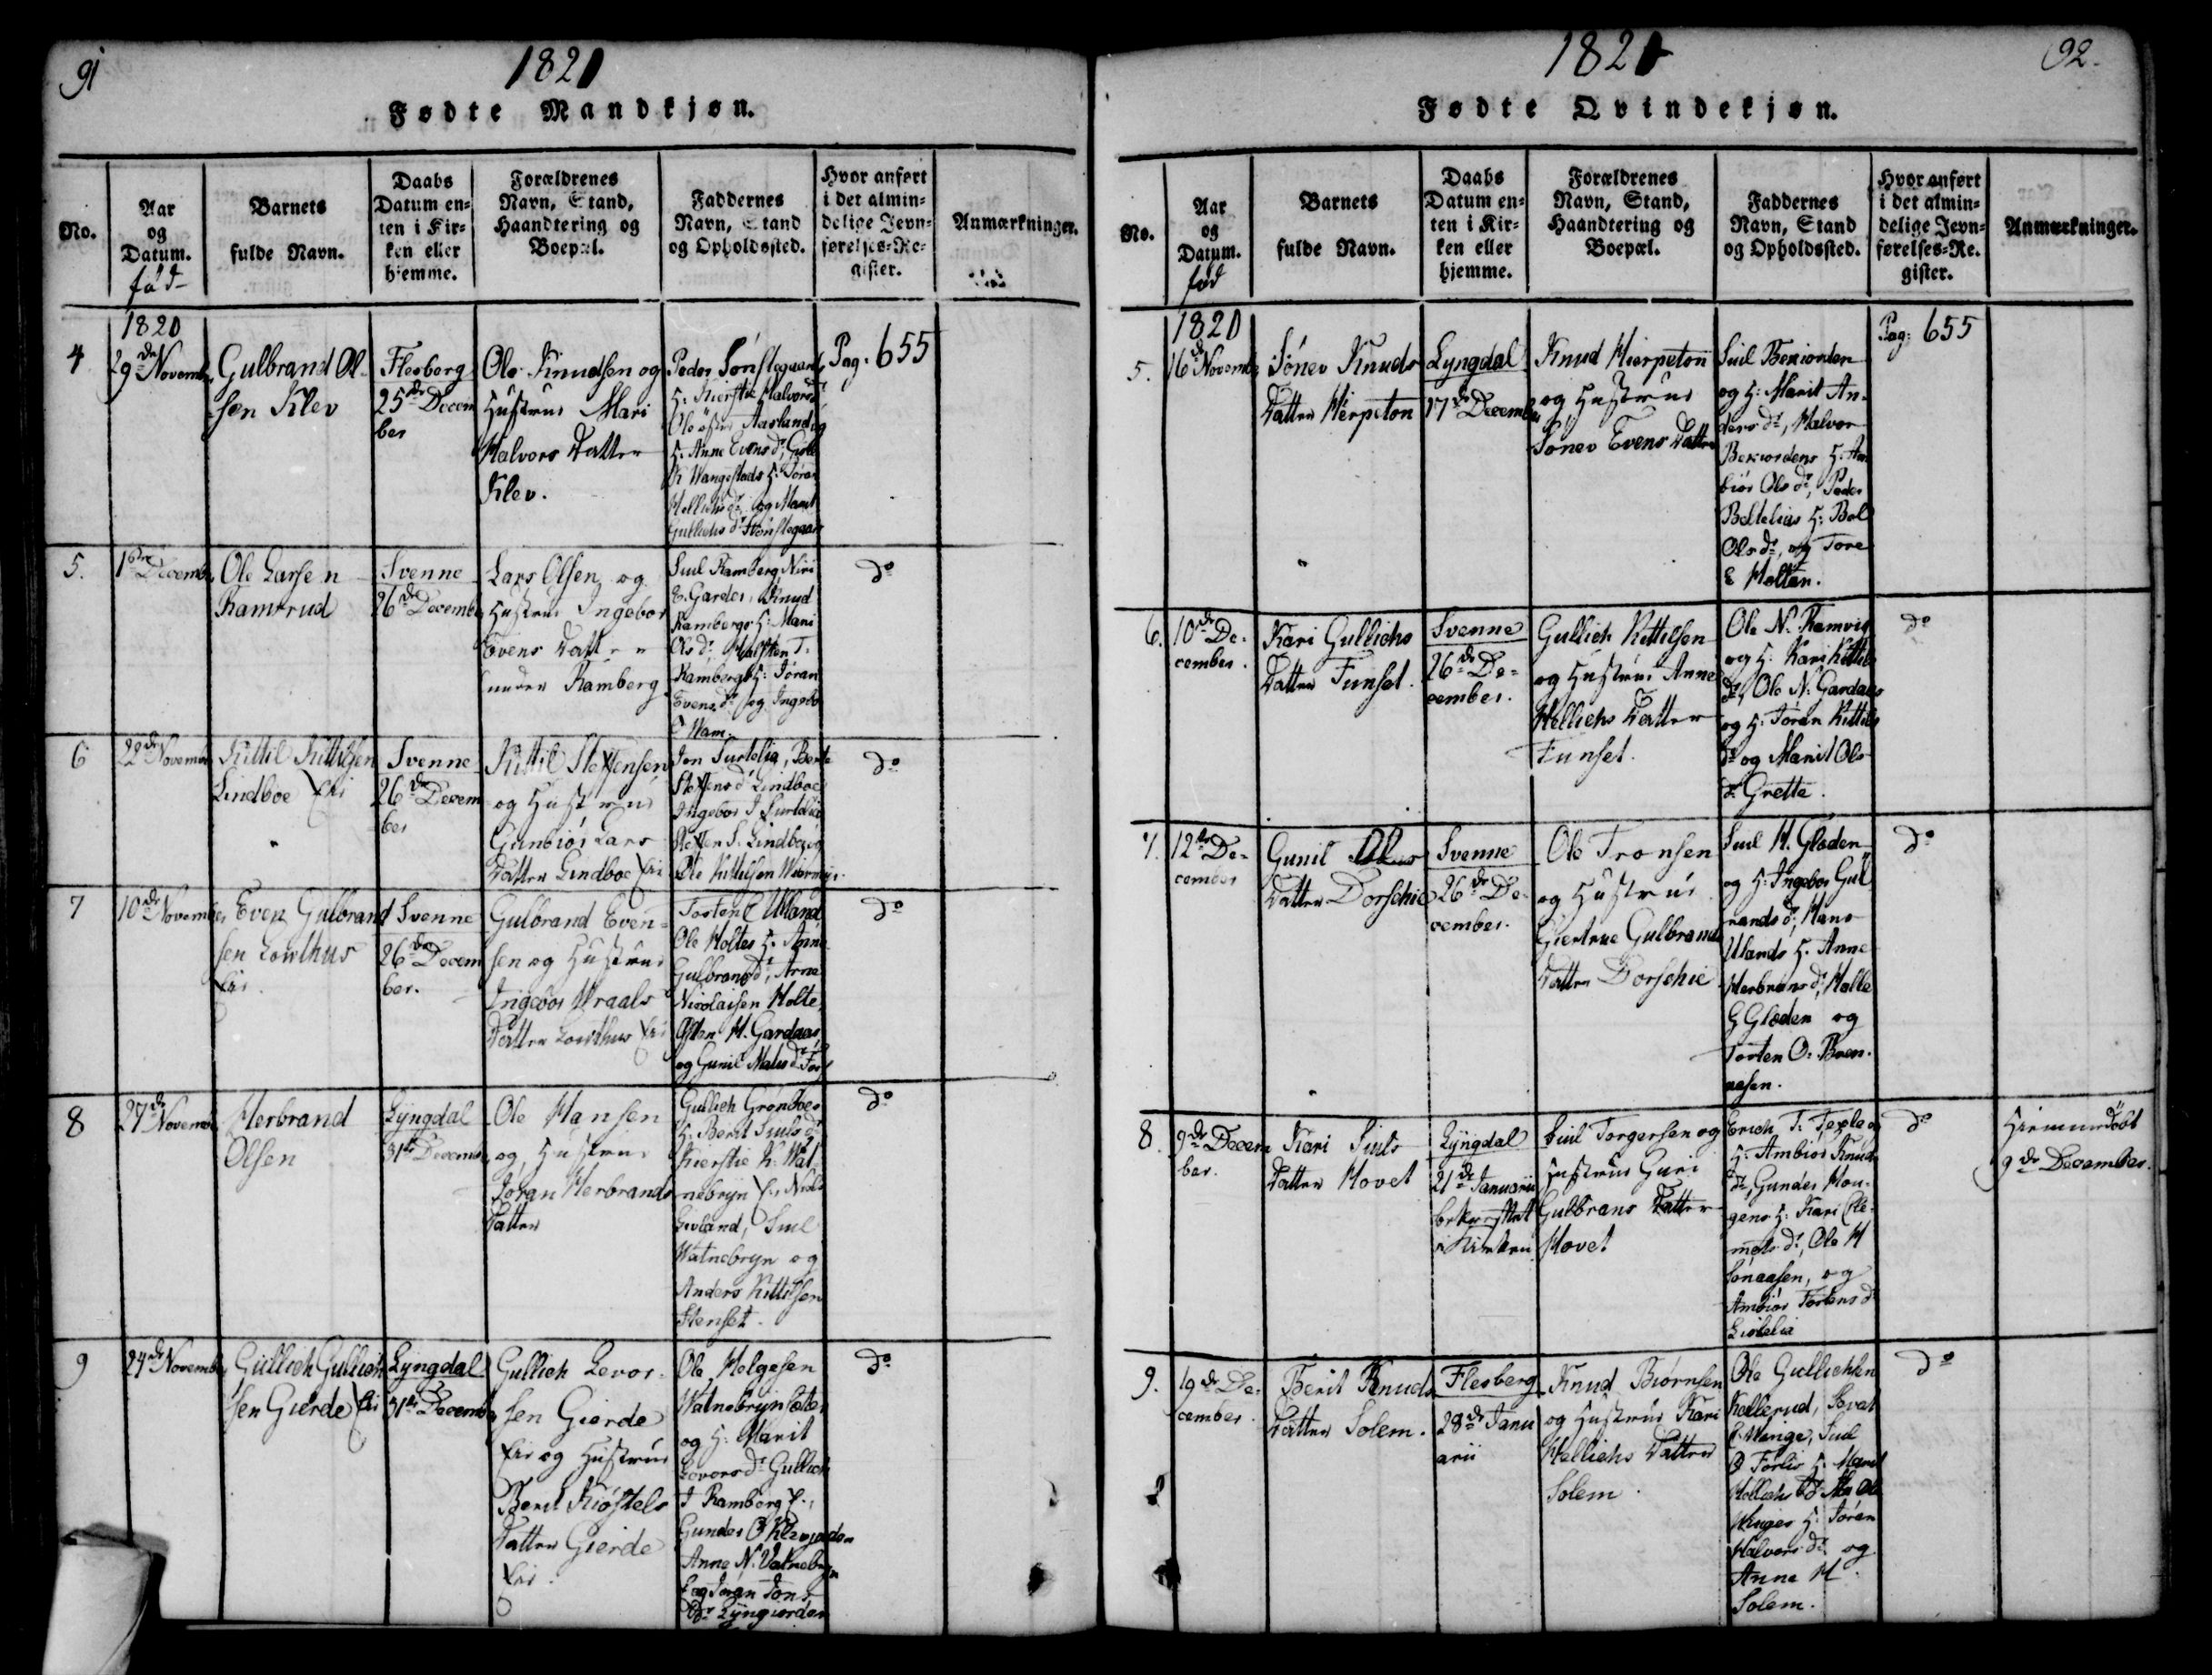 91
1821
Fødte Mandkjøn.
No.
Aar
og
Datum.
fød
Barnets
fulde Navn.
Daabs
Datum en-
ten i Kir-
ken eller
hjemme.
Forældrenes
Navn, Stand,
Haandtering og
Boepæl.
Faddernes
Navn, Stand
og Opholdssted.
Hvor anført
i det almin-
delige Jevn-
førelses-Re-
gister.
Anmærkninger.
4
1820
29de Novembr
Gulbrand Ol-
sen Klev
Flesberg
25de Decem
ber
Ole Knudsen og
Hustrue Mari
Halvors Datter
Klev.
Peder
H: Kierstie Halvorsdr
Ole Aasland og
H: Anne Evensdr,
H: Jøran
og Marit
Gullichsdr
Pag: 655
5.
1ste Decembr
Ole Larsen
Ramsrud
Svenne
26de Decembr
Lars Olsen og
Hustrue Ingebor
Evens Datter
under Ramberg
Siul Ramberg
E. Garder, Knud
Rambergs H: Mari
Olsdr, Halsten T.
Rambergs H: Jøran
Evensdr og Ingebor
do
6
22de Novembr
Kittil Kittilsen
Lindboe Eie
Svenne
26de Decem
ber
Kittil Steffensen
og Hustrue
Gunbiør Lars
Datter Lindboe Eie
Jon Surtelia, Berte
Steffensdr Lindboe
Ingebor J Surtelia
Steffen S. Lindboe og
Ole Kittilsen
do
7
10de November
Even Gulbrand
sen Lowthus
Eie.
Svenne
26de Decem
ber.
Gulbrand Even-
sen og Hustrue
Ingebor Wraals
Datter Lowthus Eie
Torsten
Ole Holtes H: Anne
Gulbrandsdr, Arne
Nicolaisen Holte,
Østen H. Gardaas
og Gunil
do
8
27de Novembr
Herbrand
Olsen
Lyngdal
31te Decembr
Ole Hansen
og Hustrue
Jøran Herbrands
Datter
Gullich Grønboes
H: Berit Siulsdr
Kierstie K. Wat-
nebryn Eie Niels
Livland, Siul
Watnebryn og
Anders Kittilsen
Stenset.
do
9
24de Novembr
Gullich Gullich
sen Gierde Eie
Lyngdal
31te Decembr
Gullich Levor-
sen Gierde
Eie og Hustrue
Berit Kiøstels
Datter Gierde
Eie.
Ole Helgesen
Watnebryn
og H: Marit
Levorsdr Gullich
J Ramberg E.,
Gunder
Anne N. Vatnebryn
E og Jøran Jons
dr Lyngjordet
do
1821
92.
Fødte Qvindekjøn.
No.
Aar
og
Datum.
fød
Barnets
fulde Navn.
Daabs
Datum en-
ten i Kir-
ken eller
hjemme.
Forældrenes
Navn, Stand,
Haandtering og
Boepæl.
Faddernes
Navn, Stand
og Opholdssted.
Hvor anført
i det almin-
delige Jevn-
førelses-Re-
gister.
Anmærkninger.
5.
1820
16de Novembr
Sønev Knuds
Datter Hierpeton
Lyngdal
17de December
Knud Hierpeton
og Hustrue
Sønev Evens Datter
Siul Bekiorden
og H: Marit An-
dersdr, Halvor
Bekiordens H: Am
biør Olsdr, Peder
Beltelias H: Bol
Olsdr, og Tore
E Holtan.
Pag: 655
6.
10de De-
cember.
Kari Gullichs
Datter Funset.
Svenne
26de De-
cember.
Gullich Kittilsen
og Hustrue Anne
Hellichs Datter
Funset.
Ole N. Ramvig
og H: Kari Kittils
dr, Ole N. Gardaas
og H: Jøran Kittils
dr og Marit Ols
dr Grette.
do
7.
12te De-
cember
Gunil Ols
Datter Dorschie
Svenne
26de De-
cember.
Ole Tronsen
og Hustrue
Giertrue Gulbrands
Datter Dorschie
Siul H. Gloden
og H: Ingebor Gul
randsdr, Hans
Ulands H: Anne
Herbransdr, Halle
G Gloden og
Torsten O.
aasen.
do
8.
9de Decem
ber.
Kari Siuls
Datter Hovet
Lyngdal
21de Januarii
bekræftet
i Kirken
Siul Torgersen og
Hustrue Guri
Gulbrans Datter
Hovet
Erich T. Texle og
H: Ambiør Knuds
dr, Gunder Hou-
gens H: Kari Cle-
metsdr, Ole H
Sønaasen, og
Ambiør Torstensdr
do
Hiemmedøbt
9de December.
9.
19de De-
cember.
Berit Knuds
Datter Solem.
Flesberg
28de Janu
arii
Knud Biørnsen
og Hustrue Kari
Hellichs Datter
Solem.
Ole Gullichsen
Kallerud,
Wange, Siul
H: Marit
Hellichsdr
H: Jøran
Halvorsdr og
Anne H
Solem.
do